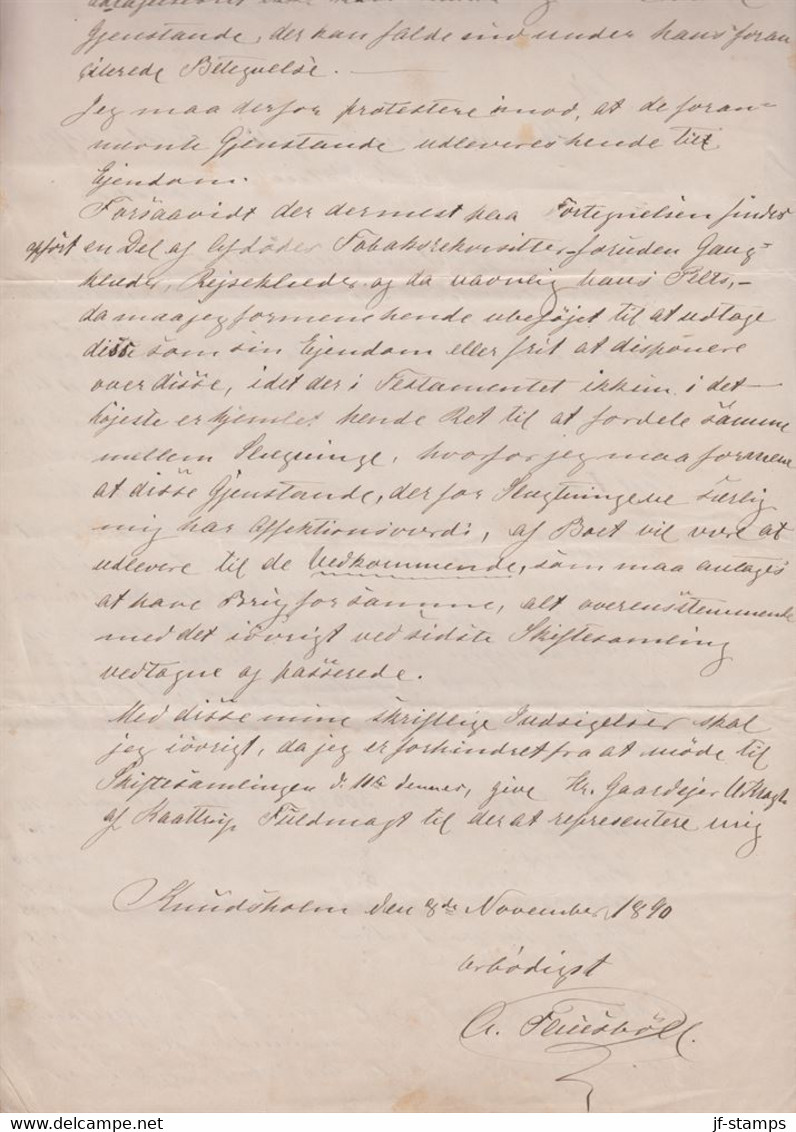 Gjenstande, der kan falde ind under hans foran
citerede Betegnelse.
Jeg maa derfor protestere imod, at de foran-
nævnte Gjenstande udleveres hende til
Ejendom.
Forsaavidt der dernest paa Fortegnelsen findes
opført en Del af Afdødes Tobaksrekvisitter foruden Gang-
klæder, Rejseklæder og da navnlig hans Pelts,
da maa jeg formene hende ubeføjet til at udtage
disse som sin Ejendom eller frit at disponere
over disse, idet der i Testamentet ikkun i det
højeste er hjemlet hende Ret til at fordele samme
mellem Slegtninge, hvorfor jeg maa formene
at disse Gjenstande, der for Slegtningene særlig
mig har Affektionsværdi, af Boet vil være at
udlevere til de Vedkommende, som maa antages
at have Brug for samme, alt overensstemmende
med det iøvrigt ved sidste Skiftesamling
vedtagne og passerede.
Med disse mine skriftlige Indsigelser skal
jeg iøvrigt, da jeg er forhindret fra at møde til
Skiftesamlingen d. 11te dennes, give Hr. Gaardejer
af Kaattrup Fuldmagt til der at representere mig
Knudsholm den 8de November 1890
ærbødigst
jf-stamps